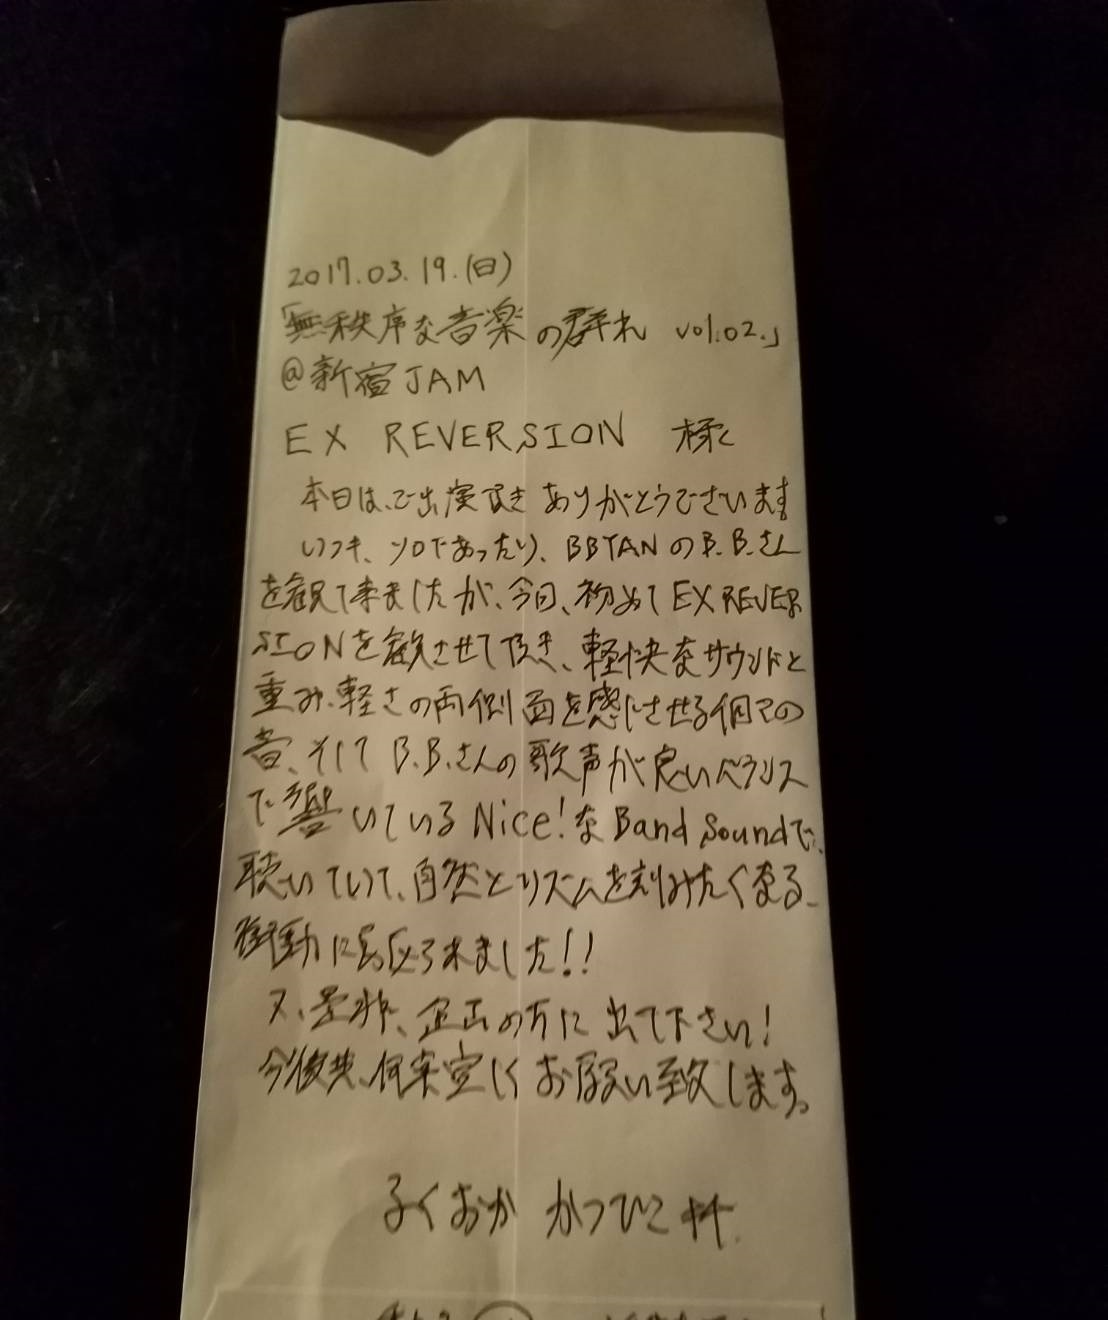 2017.03.19.(日)
「無秩序な音楽の群れ vol.02.」
@新宿JAM
EX REVERSION 様
本日は、ご出演頂きありがとうございます
いつも、ソロであったり、BBTANのB.B.さん
を観て来ましたが、今日、初めてEX REVER
SIONを観させて頂き、軽快なサウンドと
重み、軽さの両側面を感じさせる個々の
音、そしてB.B.さんの歌声が良いバランス
で響いているNice!なBand Soundで、
聴いていて、自然とリズムを刻みたくなる、
衝動に駆られました!!
又、是非、企画の方に出て下さい!
今後共、何卒宜しくお願い致します。
ふくおか かつひこ